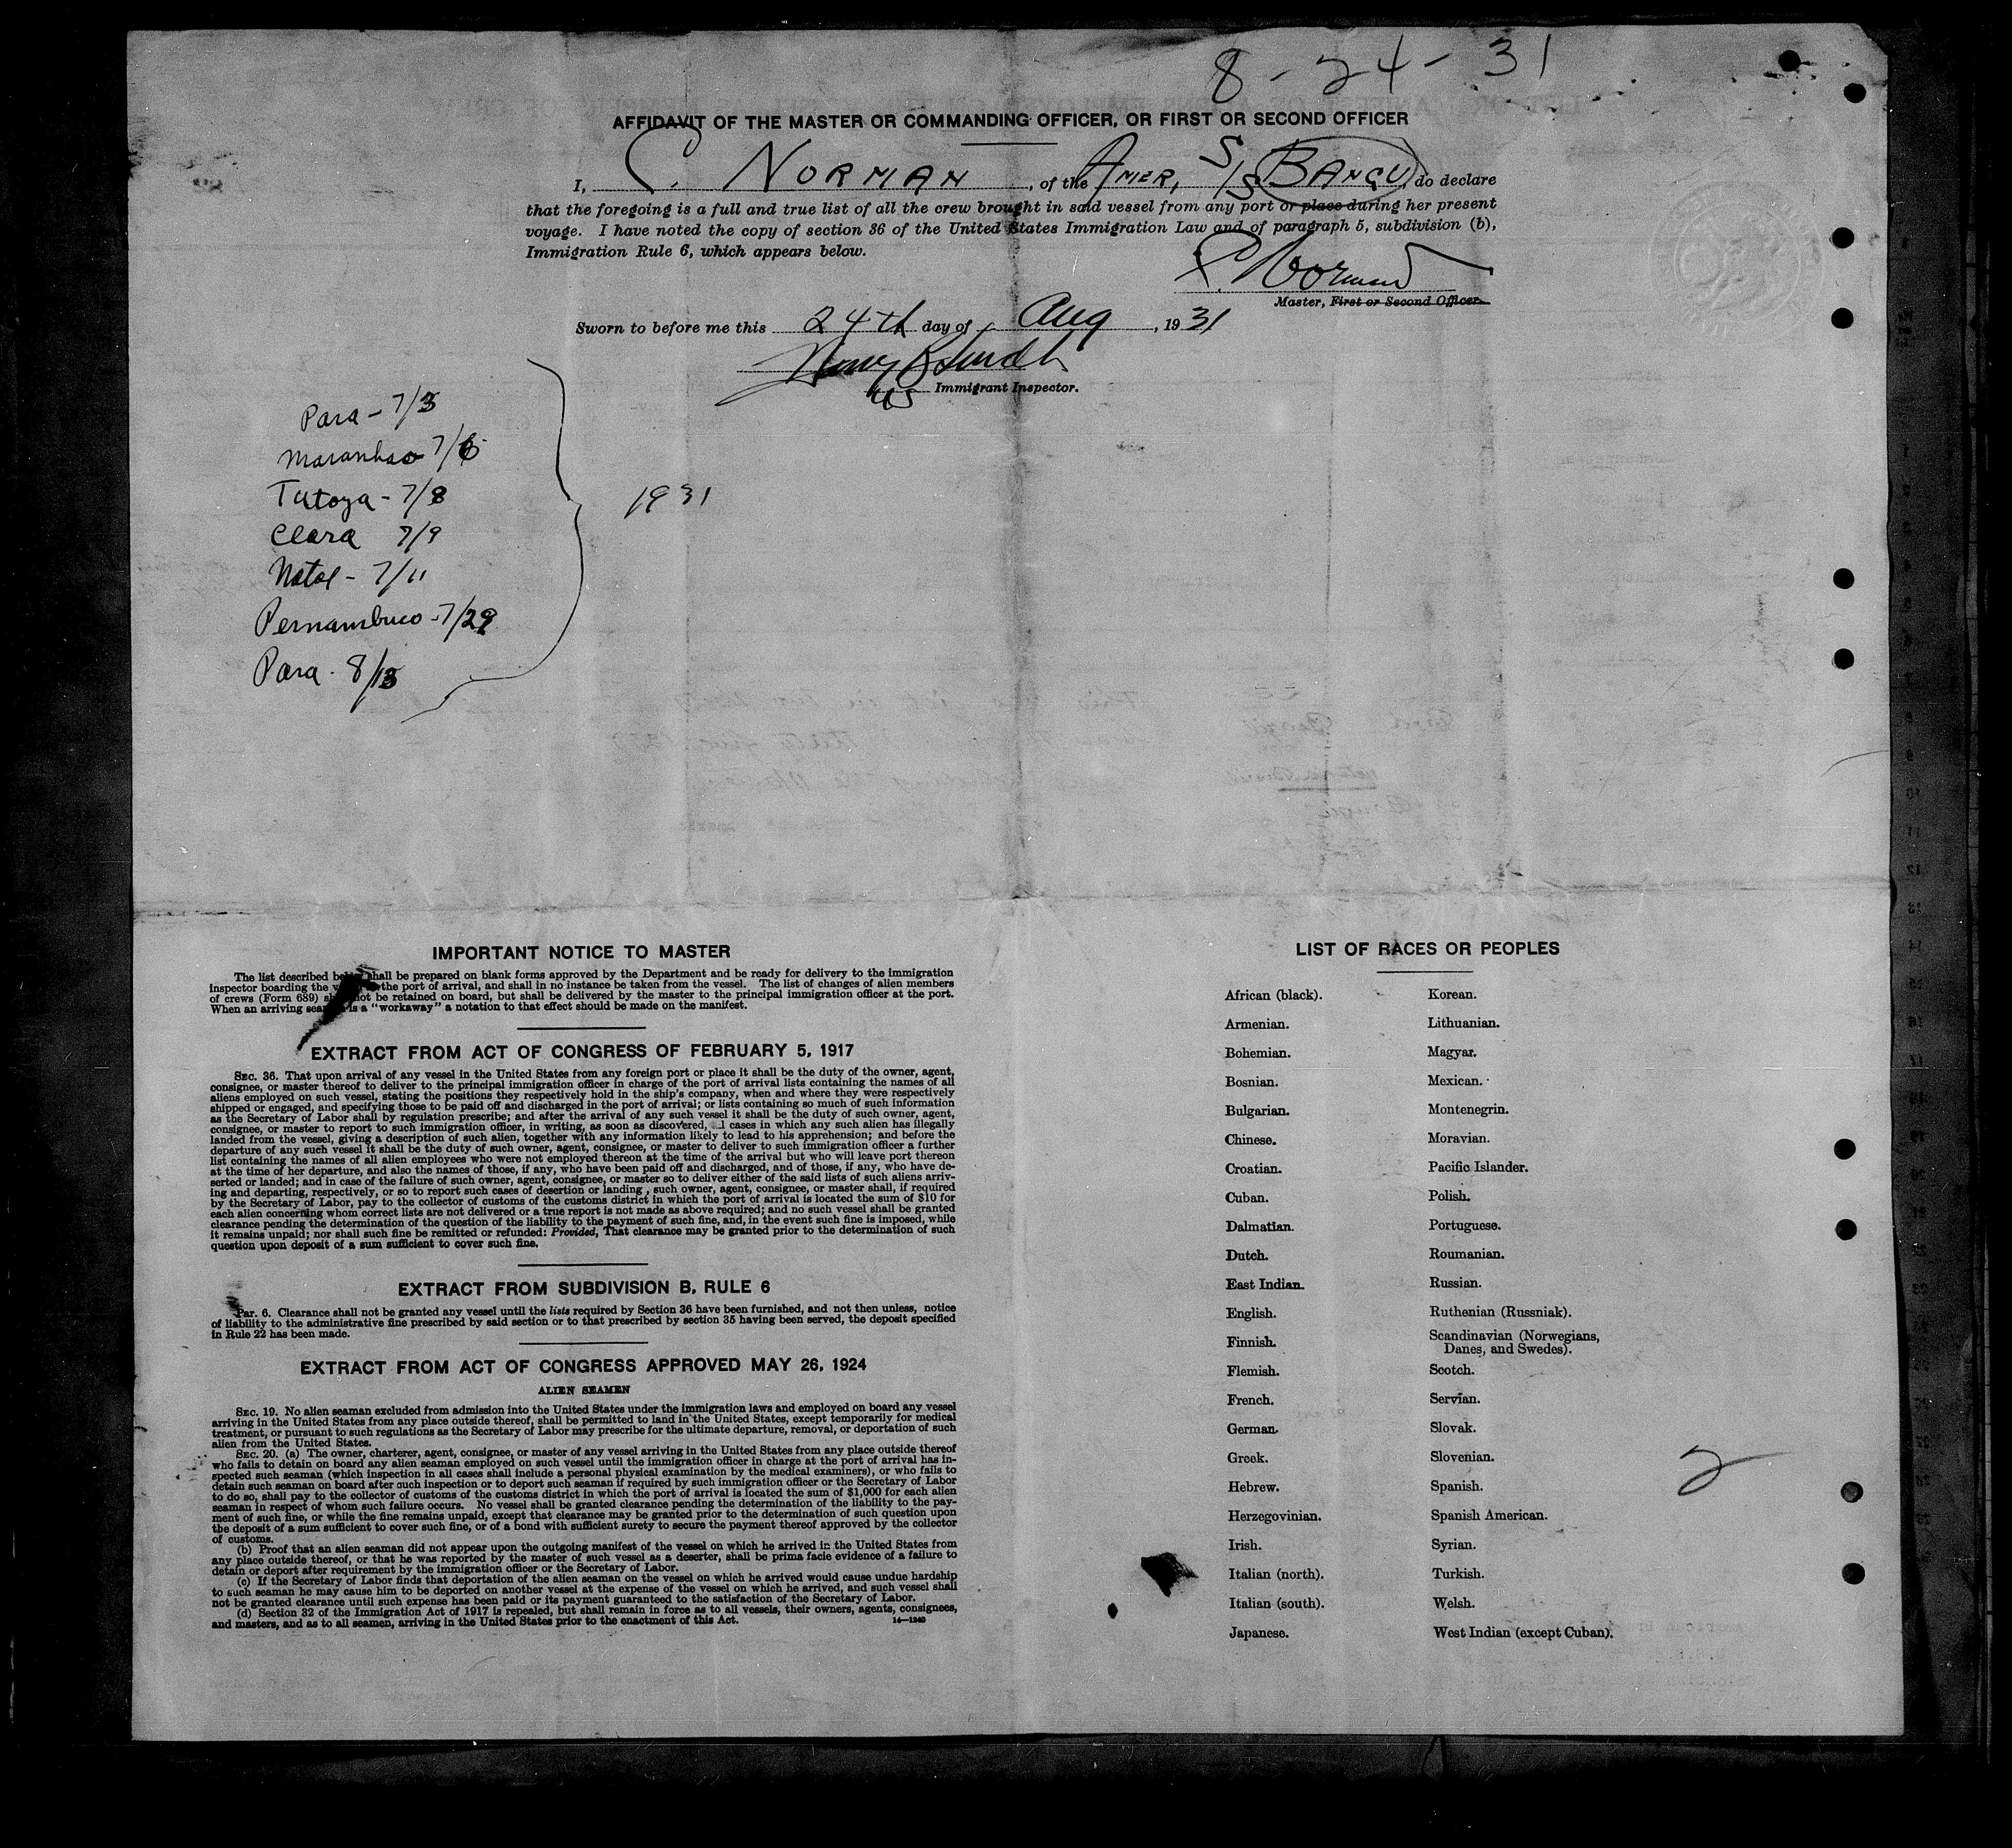 8-24-31
AFFIDAVIT OF THE MASTER OR COMMANDING OFFICER, OR FIRST OR SECOND OFFICER
I, C. NORMAN, of the AMER, S/S BANGU, do declare
that the foregoing is a full and true list of all the crew brought in said vessel from any port or place during her present
voyage. I have noted the copy of section 36 of the United States Immigration Law and of paragraph 5, subdivision (b),
Immigration Rule 6, which appears below.
C. Norman
Master, First or Second Officer.
Sworn to before me this 24th day of Aug, 1931
US Immigrant Inspector.
Para - 7/3
Maranhao 7/6
Tutoya - 7/8
Ceara 7/9
Natal - 7/11
Pernambuco - 7/29
Para - 8/13
1931
IMPORTANT NOTICE TO MASTER
The list described below shall be prepared on blank forms approved by the Department and be ready for delivery to the immigration
inspector boarding the the port of arrival, and shall in no instance be taken from the vessel. The list of changes of alien members
of crews (Form 689) shall not be retained on board, but shall be delivered by the master to the principal immigration officer at the port.
When an arriving seaman is a "workaway" a notation to that effect should be made on the manifest.
EXTRACT FROM ACT OF CONGRESS OF FEBRUARY 5, 1917
SEC. 36. That upon arrival of any vessel in the United States from any foreign port or place it shall be the duty of the owner, agent,
consignee, or master thereof to deliver to the principal immigration officer in charge of the port of arrival lists containing the names of all
aliens employed on such vessel, stating the positions they respectively hold in the ship's company, when and where they were respectively
shipped or engaged, and specifying those to be paid off and discharged in the port of arrival; or lists containing so much of such information
as the Secretary of Labor shall by regulation prescribe; and after the arrival of any such vessel it shall be the duty of such owner, agent,
consignee, or master to report to such immigration officer, in writing, as soon as discovered, all cases in which any such alien has illegally
landed from the vessel, giving a description of such alien, together with any information likely to lead to his apprehension; and before the
departure of any such vessel it shall be the duty of such owner, agent, consignee, or master to deliver to such immigration officer a further
list containing the names of all alien employees who were not employed thereon at the time of the arrival but who will leave port thereon
at the time of her departure, and also the names of those, if any, who have been paid off and discharged, and of those, if any, who have de-
serted or landed; and in case of the failure of such owner, agent, consignee, or master so to deliver either of the said lists of such aliens arriv-
ing and departing, respectively, or so to report such cases of desertion or landing, such owner, agent, consignee, or master shall, if required
by the Secretary of Labor, pay to the collector of customs of the customs district in which the port of arrival is located the sum of $10 for
each alien concerning whom correct lists are not delivered or a true report is not made as above required; and no such vessel shall be granted
clearance pending the determination of the question of the liability to the payment of such fine, and, in the event such fine is imposed, while
it remains unpaid; nor shall such fine be remitted or refunded: Provided, That clearance may be granted prior to the determination of such
question upon deposit of a sum sufficient to cover such fine.
EXTRACT FROM SUBDIVISION B, RULE 6
Par. 6. Clearance shall not be granted any vessel until the lists required by Section 36 have been furnished, and not then unless, notice
of liability to the administrative fine prescribed by said section or to that prescribed by section 35 having been served, the deposit specified
in Rule 22 has been made.
EXTRACT FROM ACT OF CONGRESS APPROVED MAY 26, 1924
ALIEN SEAMEN
SEC. 19. No alien seaman excluded from admission into the United States under the immigration laws and employed on board any vessel
arriving in the United States from any place outside thereof, shall be permitted to land in the United States, except temporarily for medical
treatment, or pursuant to such regulations as the Secretary of Labor may prescribe for the ultimate departure, removal, or deportation of such
alien from the United States.
SEC. 20. (a) The owner, charterer, agent, consignee, or master of any vessel arriving in the United States from any place outside thereof
who fails to detain on board any alien seaman employed on such vessel until the immigration officer in charge at the port of arrival has in-
spected such seaman (which inspection in all cases shall include a personal physical examination by the medical examiners), or who fails to
detain such seaman on board after such inspection or to deport such seaman if required by such immigration officer or the Secretary of Labor
to do so, shall pay to the collector of customs of the customs district in which the port of arrival is located the sum of $1,000 for each alien
seaman in respect of whom such failure occurs. No vessel shall be granted clearance pending the determination of the liability to the pay-
ment of such fine, or while the fine remains unpaid, except that clearance may be granted prior to the determination of such question upon
the deposit of a sum sufficient to cover such fine, or of a bond with sufficient surety to secure the payment thereof approved by the collector
of customs.
(b) Proof that an alien seaman did not appear upon the outgoing manifest of the vessel on which he arrived in the United States from
any place outside thereof, or that he was reported by the master of such vessel as a deserter, shall be prima facie evidence of a failure to
detain or deport after requirement by the immigration officer or the Secretary of Labor.
(c) If the Secretary of Labor finds that deportation of the alien seaman on the vessel on which he arrived would cause undue hardship
to such seaman he may cause him to be deported on another vessel at the expense of the vessel on which he arrived, and such vessel shall
not be granted clearance until such expense has been paid or its payment guaranteed to the satisfaction of the Secretary of Labor.
(d) Section 32 of the Immigration Act of 1917 is repealed, but shall remain in force as to all vessels, their owners, agents, consignees,
and masters, and as to all seamen, arriving in the United States prior to the enactment of this Act. 14—1240
LIST OF RACES OR PEOPLES
African (black). Korean.
Armenian. Lithuanian.
Bohemian. Magyar.
Bosnian. Mexican.
Bulgarian. Montenegrin.
Chinese. Moravian.
Croatian. Pacific Islander.
Cuban. Polish.
Dalmatian. Portuguese.
Dutch. Roumanian.
East Indian. Russian.
English. Ruthenian (Russniak).
Finnish. Scandinavian (Norwegians,
Danes, and Swedes).
Flemish. Scotch.
French. Servian.
German. Slovak.
Greek. Slovenian.
Hebrew. Spanish.
Herzegovinian. Spanish American.
Irish. Syrian.
Italian (north). Turkish.
Italian (south). Welsh.
Japanese. West Indian (except Cuban).
2